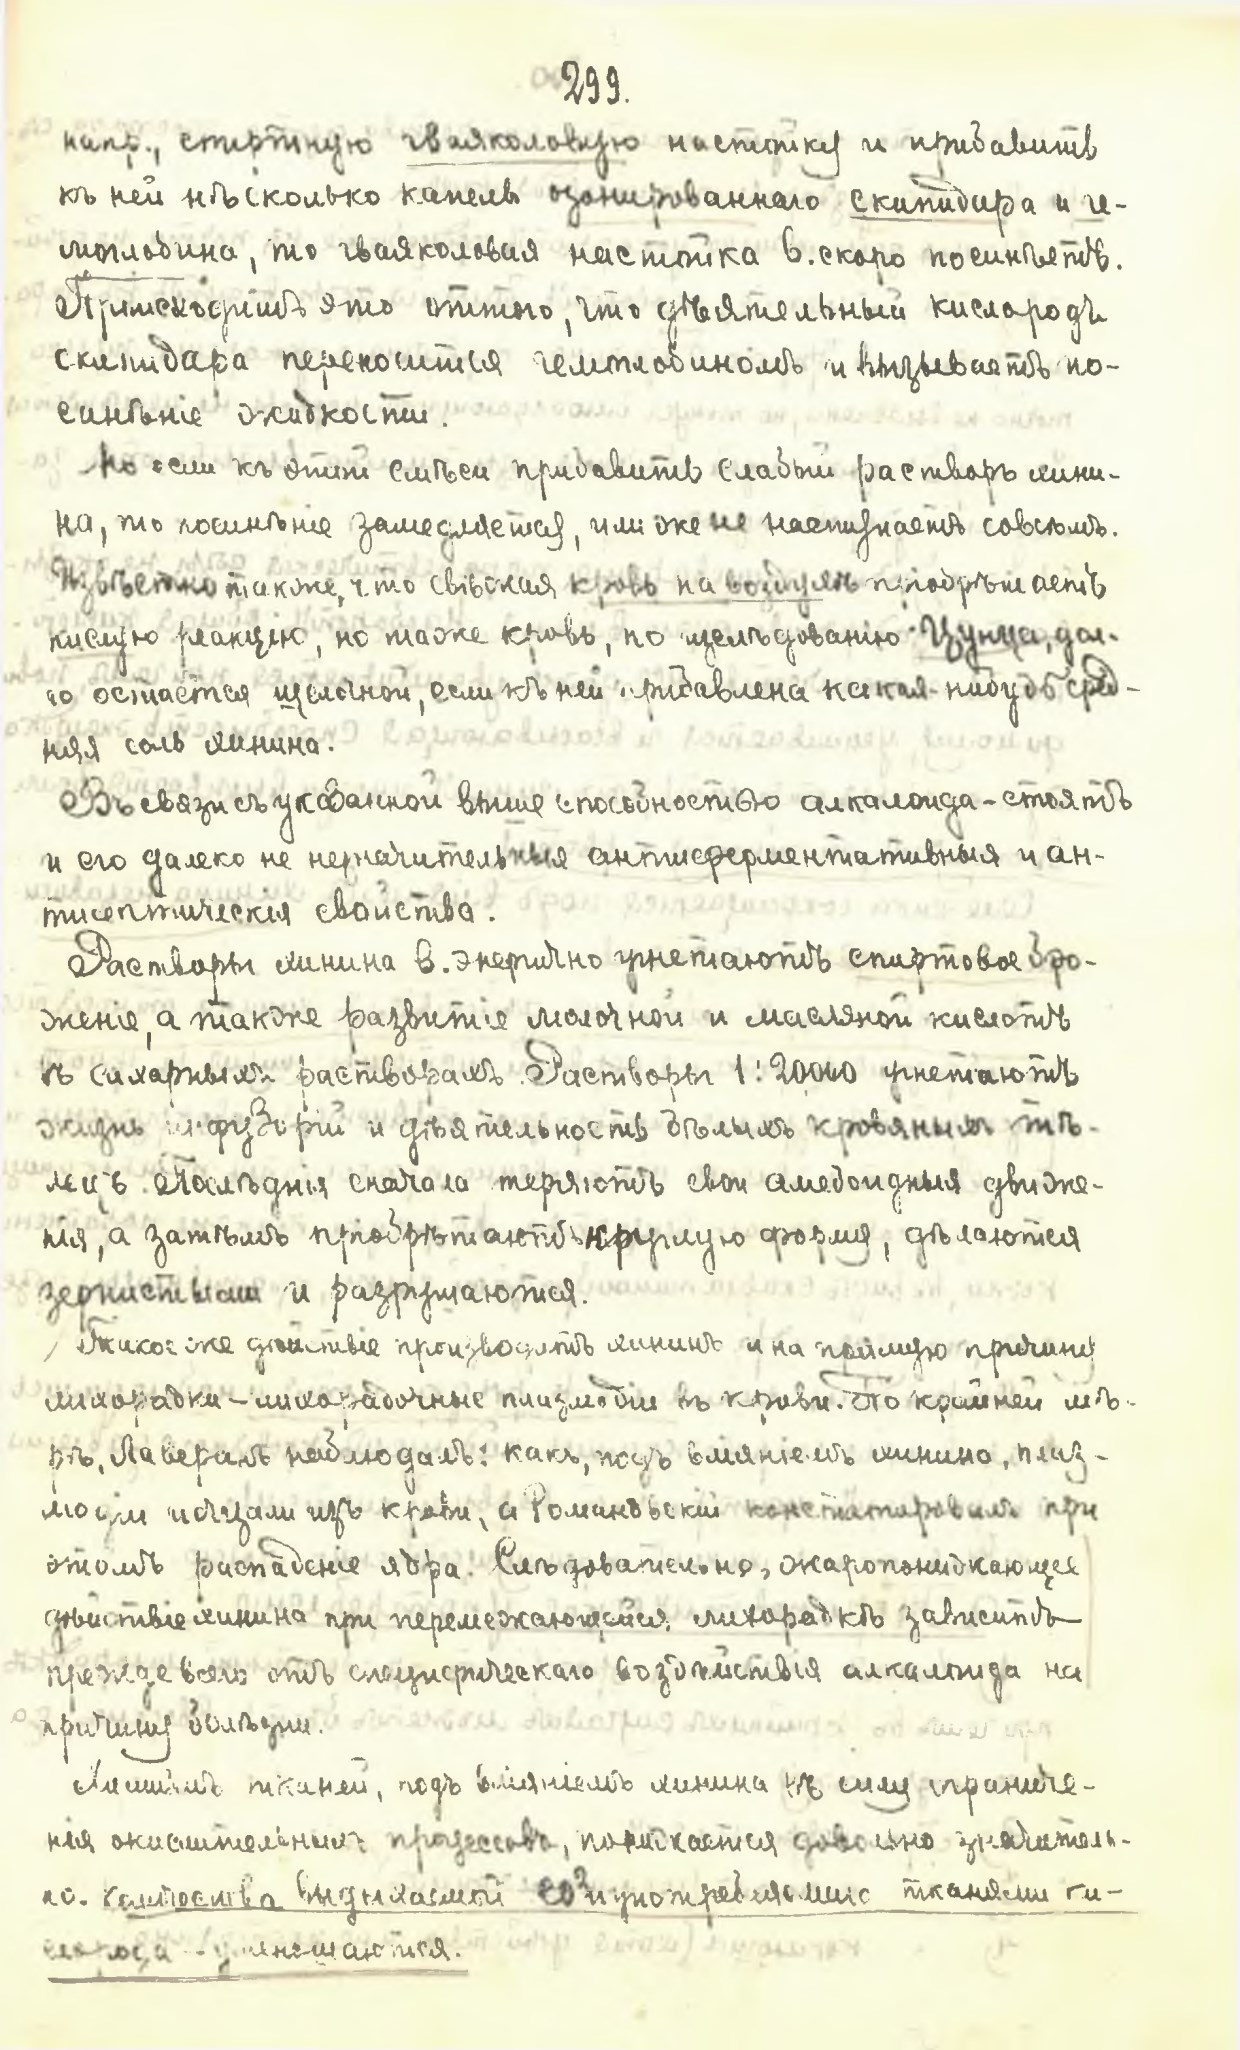 299.
напр., спиртную гваяколовую настойку и прибавить
къ ней нѣсколько капель озонированнаго скипидара и ге-
моглобина, то гваяколовая настойка в. скоро посинѣетъ.
Происходитъ это оттого, что дѣятельный кислородъ
скипидара переносится гемоглобиномъ и вызываетъ по-
синѣніе жидкости.
Но если къ этой смѣси прибавить слабый растворъ хини-
на, то посинѣніе замедляется, или же не наступаетъ совсѣмъ.
Извѣстно также, что свѣжая кровь на воздухѣ пріобрѣтаетъ
кислую реакцію, но та же кровь, по изслѣдованію Цунца, дол-
го остается щелочной, если къ ней прибавлена какая-нибудь сред-
няя соль хинина.
Въ связи съ указанной выше способностью алкалоида - стоятъ
и его далеко не незначительныя антиферментативныя и ан-
тисептическія свойства.
Растворы хинина в. энергично угнетаютъ спиртовое бро-
женіе, а также развитіе молочной и масляной кислотъ
въ сахарныхъ растворахъ. Растворы 1:20000 угнетаютъ
жизнь инфузорій и дѣятельность бѣлыхъ кровяныхъ тѣ-
лецъ. Послѣднія сначала теряютъ свои амебоидныя движе-
нія, а затѣмъ пріобрѣтаютъ круглую форму, дѣлаются
зернистыми и разрушаются.
Такое же дѣйствіе производитъ хининъ и на прямую причину
лихорадки - лихорадочные плазмодіи въ крови. По крайней мѣ-
рѣ, Лаверанъ наблюдалъ: какъ, подъ вліяніемъ хинина, плаз-
модіи исчезали изъ крови, а Романовскій констатировалъ при
этомъ распаденіе ядра. Слѣдовательно, жаропонижающее
дѣйствіе хинина при перемежающейся лихорадкѣ зависитъ
прежде всего отъ специфическаго воздѣйствія алкалоида на
причину болѣзни.
тканей, подъ вліяніемъ хинина въ силу ограниче-
нія окислительныхъ процессовъ, понижается довольно значитель-
но. Количества выдыхаемой CO² и употребляемаго тканями ки-
слорода - уменьшаются.